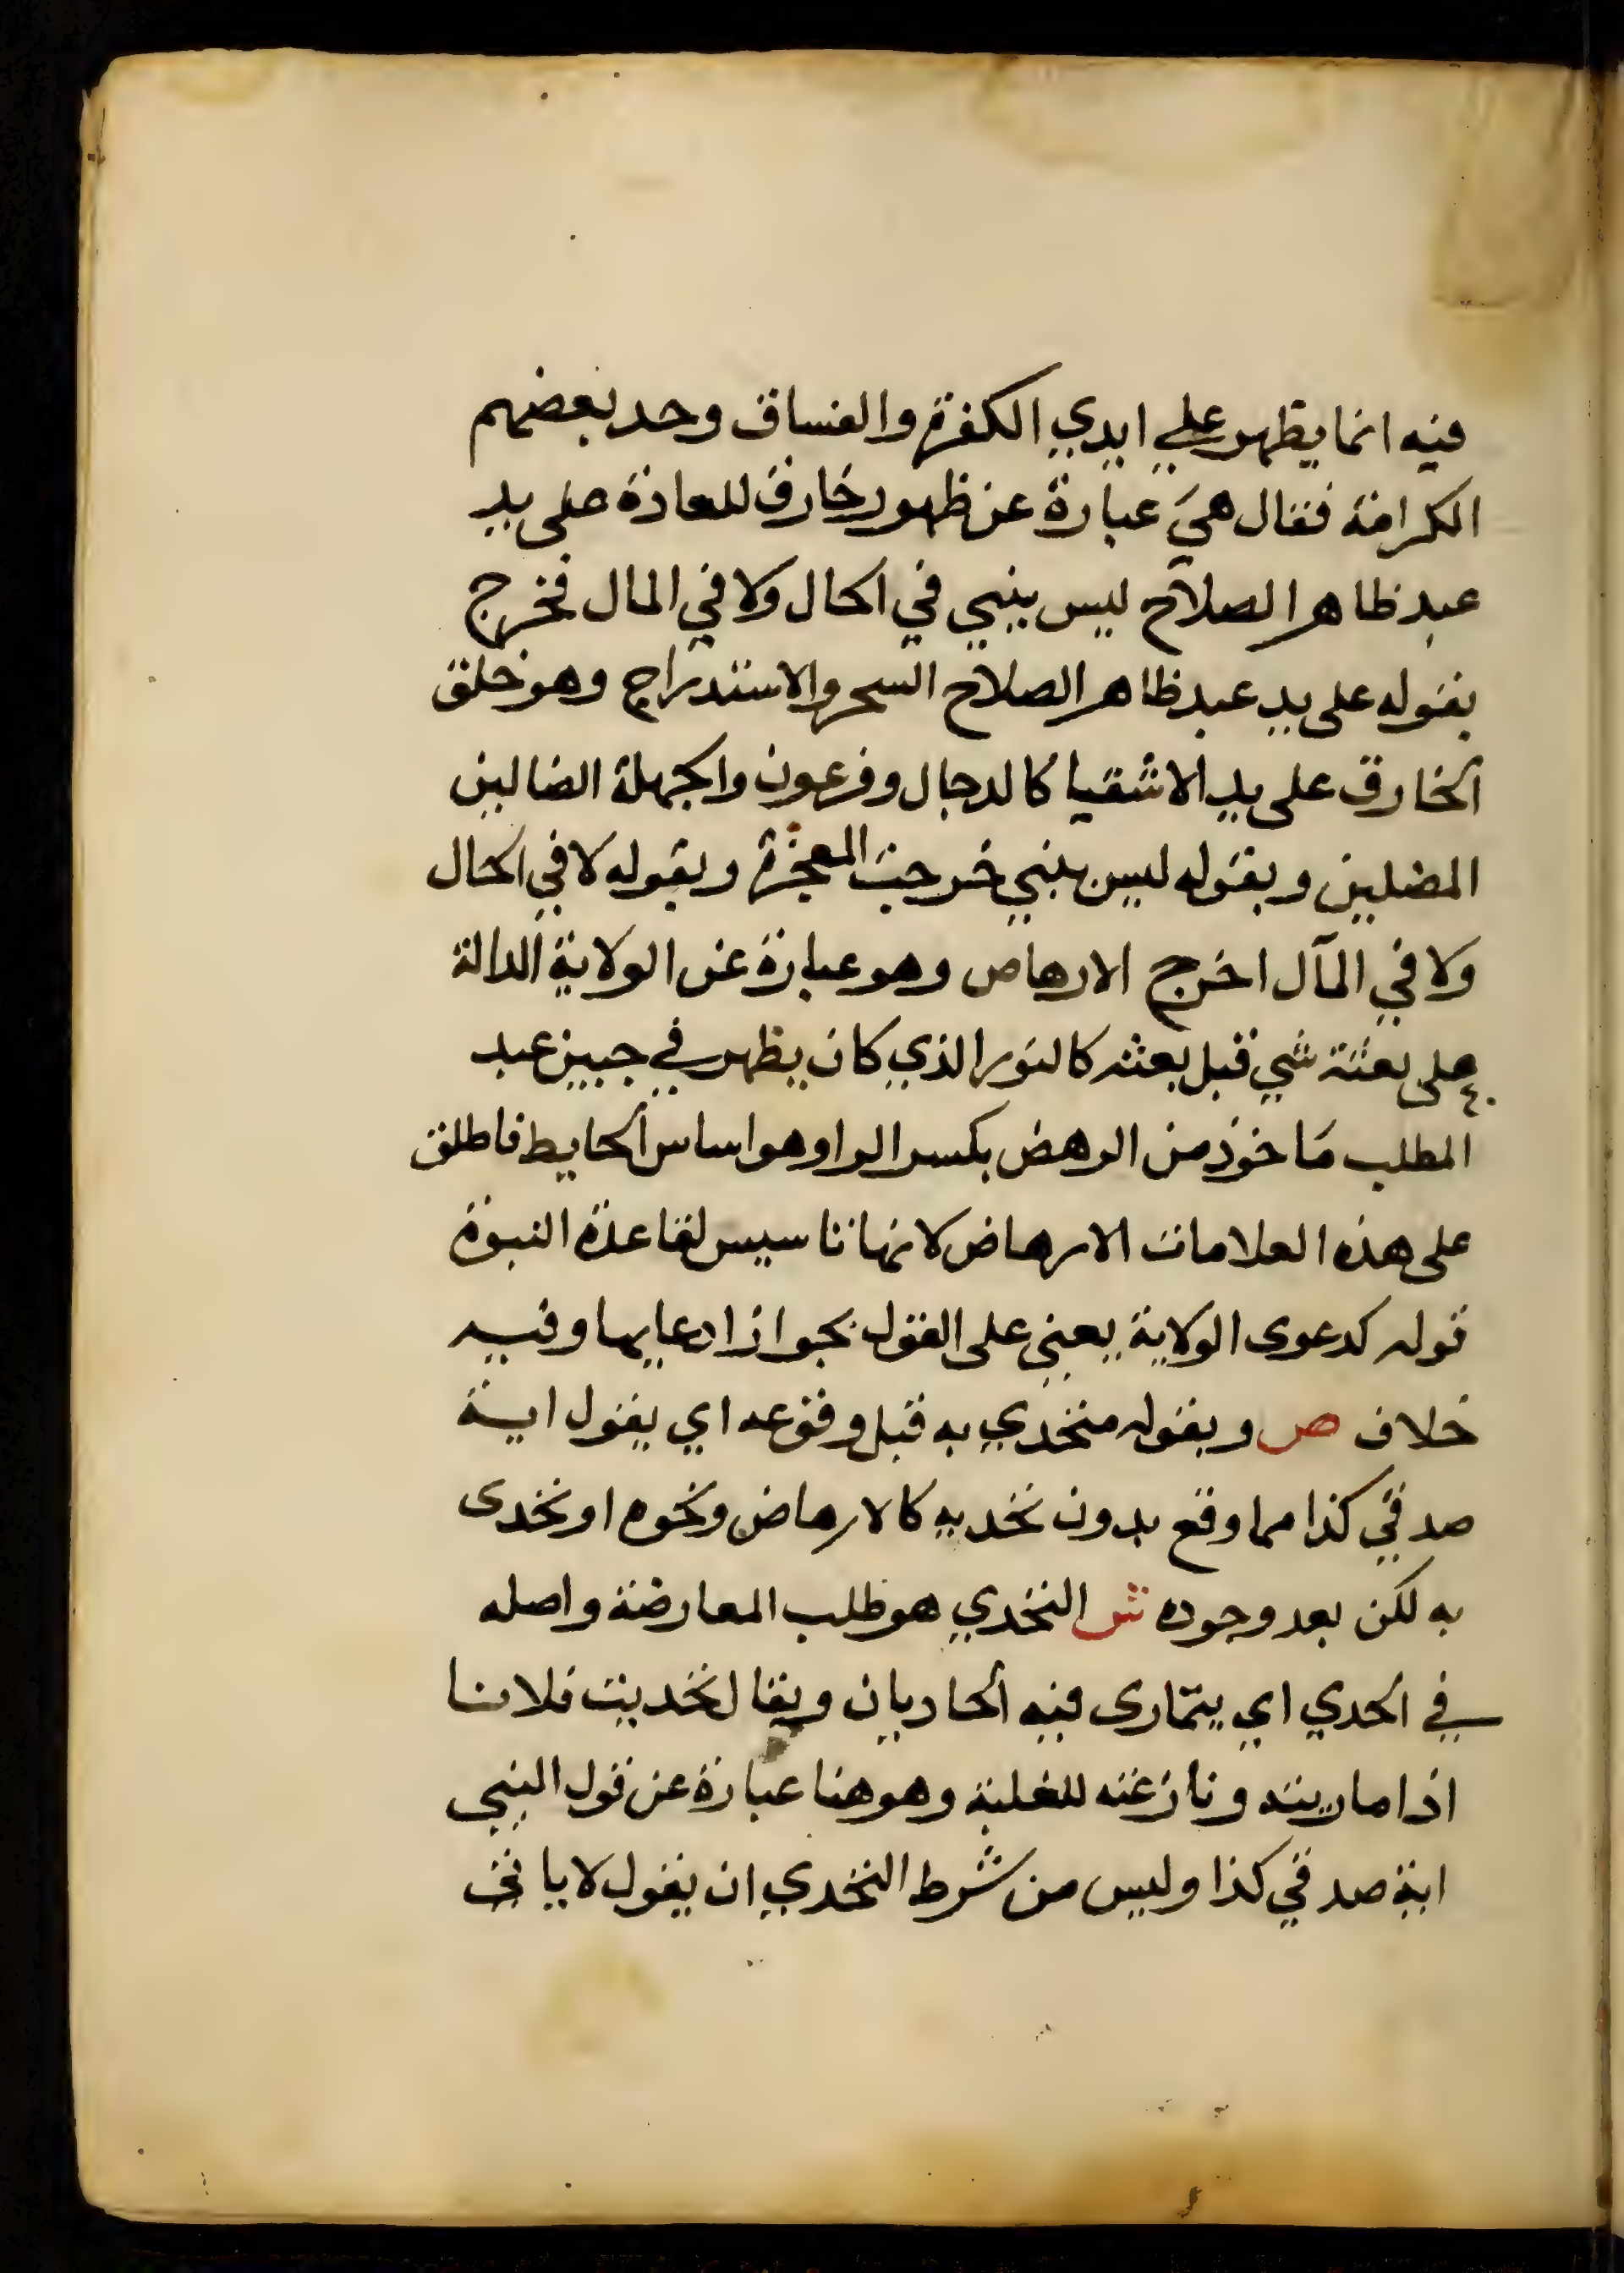 فيه انما يظهر علي ايدي الكفرة والفساق وحد بعضهم
الكرامة فقال هيَ عبارة عن ظهور خارق للعادة على يد
عبد ظاهر الصلاح ليس بنبي في الحال ولا في المال فخرج
بقوله على يد عبد ظاهر الصلاح السحر والاستدراج وهو خلق
الخارق على يد الاشقيا كالدجال وفرعون والجهلة الضالين
المضلين وبقوله ليس بنبي خرجت المعجزة وبقوله لا في الحال
ولا في المآل اخرج الارهاص وهو عبارة عن الولاية الدالة
على بعثة شي قبل بعثه كالنور الذي كان يظهر في جبين عبد
المطلب مَاخوذ من الرهض بكسر الرا وهو اساس الحايط فاطلق
على هذه العلامات الارهاض لانها تاسيس لقاعدة النبوة
قوله كدعوى الولاية يعني على القول بجواز ادعايها وفيه
خلاف ص وبقوله متحدي به قبل وقوعه اي يقول اية
صدقي كذا مما وقع بدون تحد به كالارهاض ونحوه او تحدى
به لكن بعد وجوده ش التحدي هو طلب المعارضة واصله
في الحدي اي يتمارى فيه الحاديان ويقال تحديت فلانا
اذا ماريته ونازعته للغلبة وهو هنا عبارة عن قول النبي
اية صدقي كذا وليس من شرط التحدي ان يقول لا ياتي